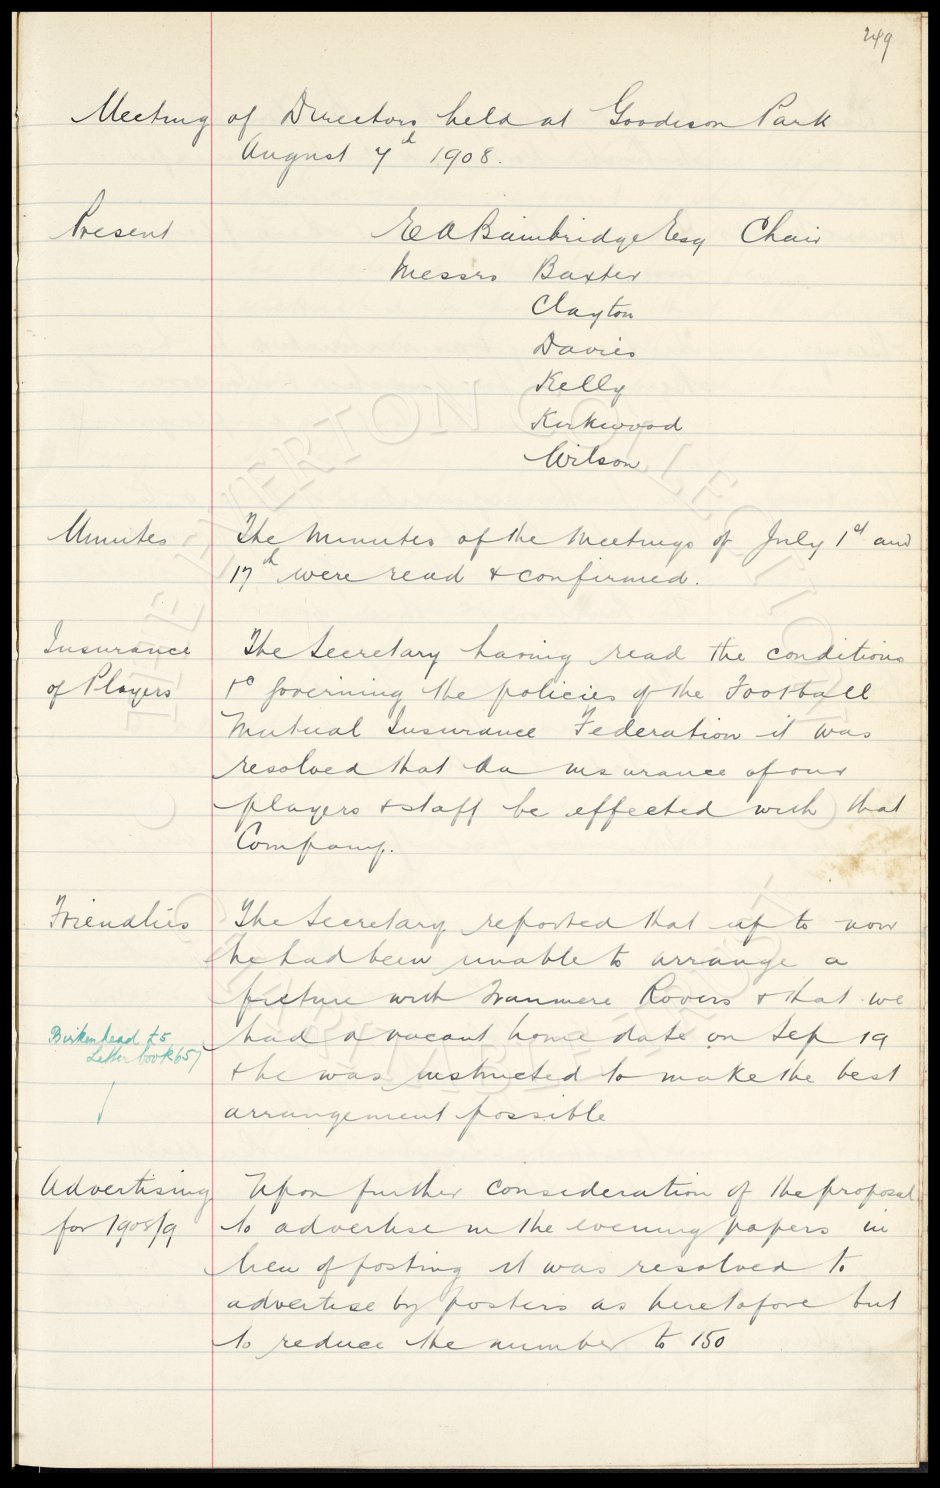 249
Meeting of Directors held at Goodison Park
August 7th 1908.
Present E A Bainbridge Esq Chair
Messrs Baxter
Clayton
Davies
Kelly
Kirkwood
Wilson
Minutes The Minutes of the Meetings of July 1st and
17th were read & confirmed.
Insurance The Secretary having read the conditions
of Players &c governing the policies of the Football
Mutual Insurance Federation it was
resolved that insurance of our
players & staff be effected with that
Company.
Friendlies The Secretary reported that up to now
he had been unable to arrange a
fixture with Tranmere Rovers & that we
Birkenhead £5 had a vacant home date on Sep 19
Letter book 657 & he was instructed to make the best
arrangement possible
Advertising Upon further consideration of the proposal
for 1908/9 to advertise in the evening papers in
lieu of posting it was resolved to
advertise by posters as heretofore but
to reduce the number to 150
THE EVERTON COLLECTION
CHARITABLE TRUST